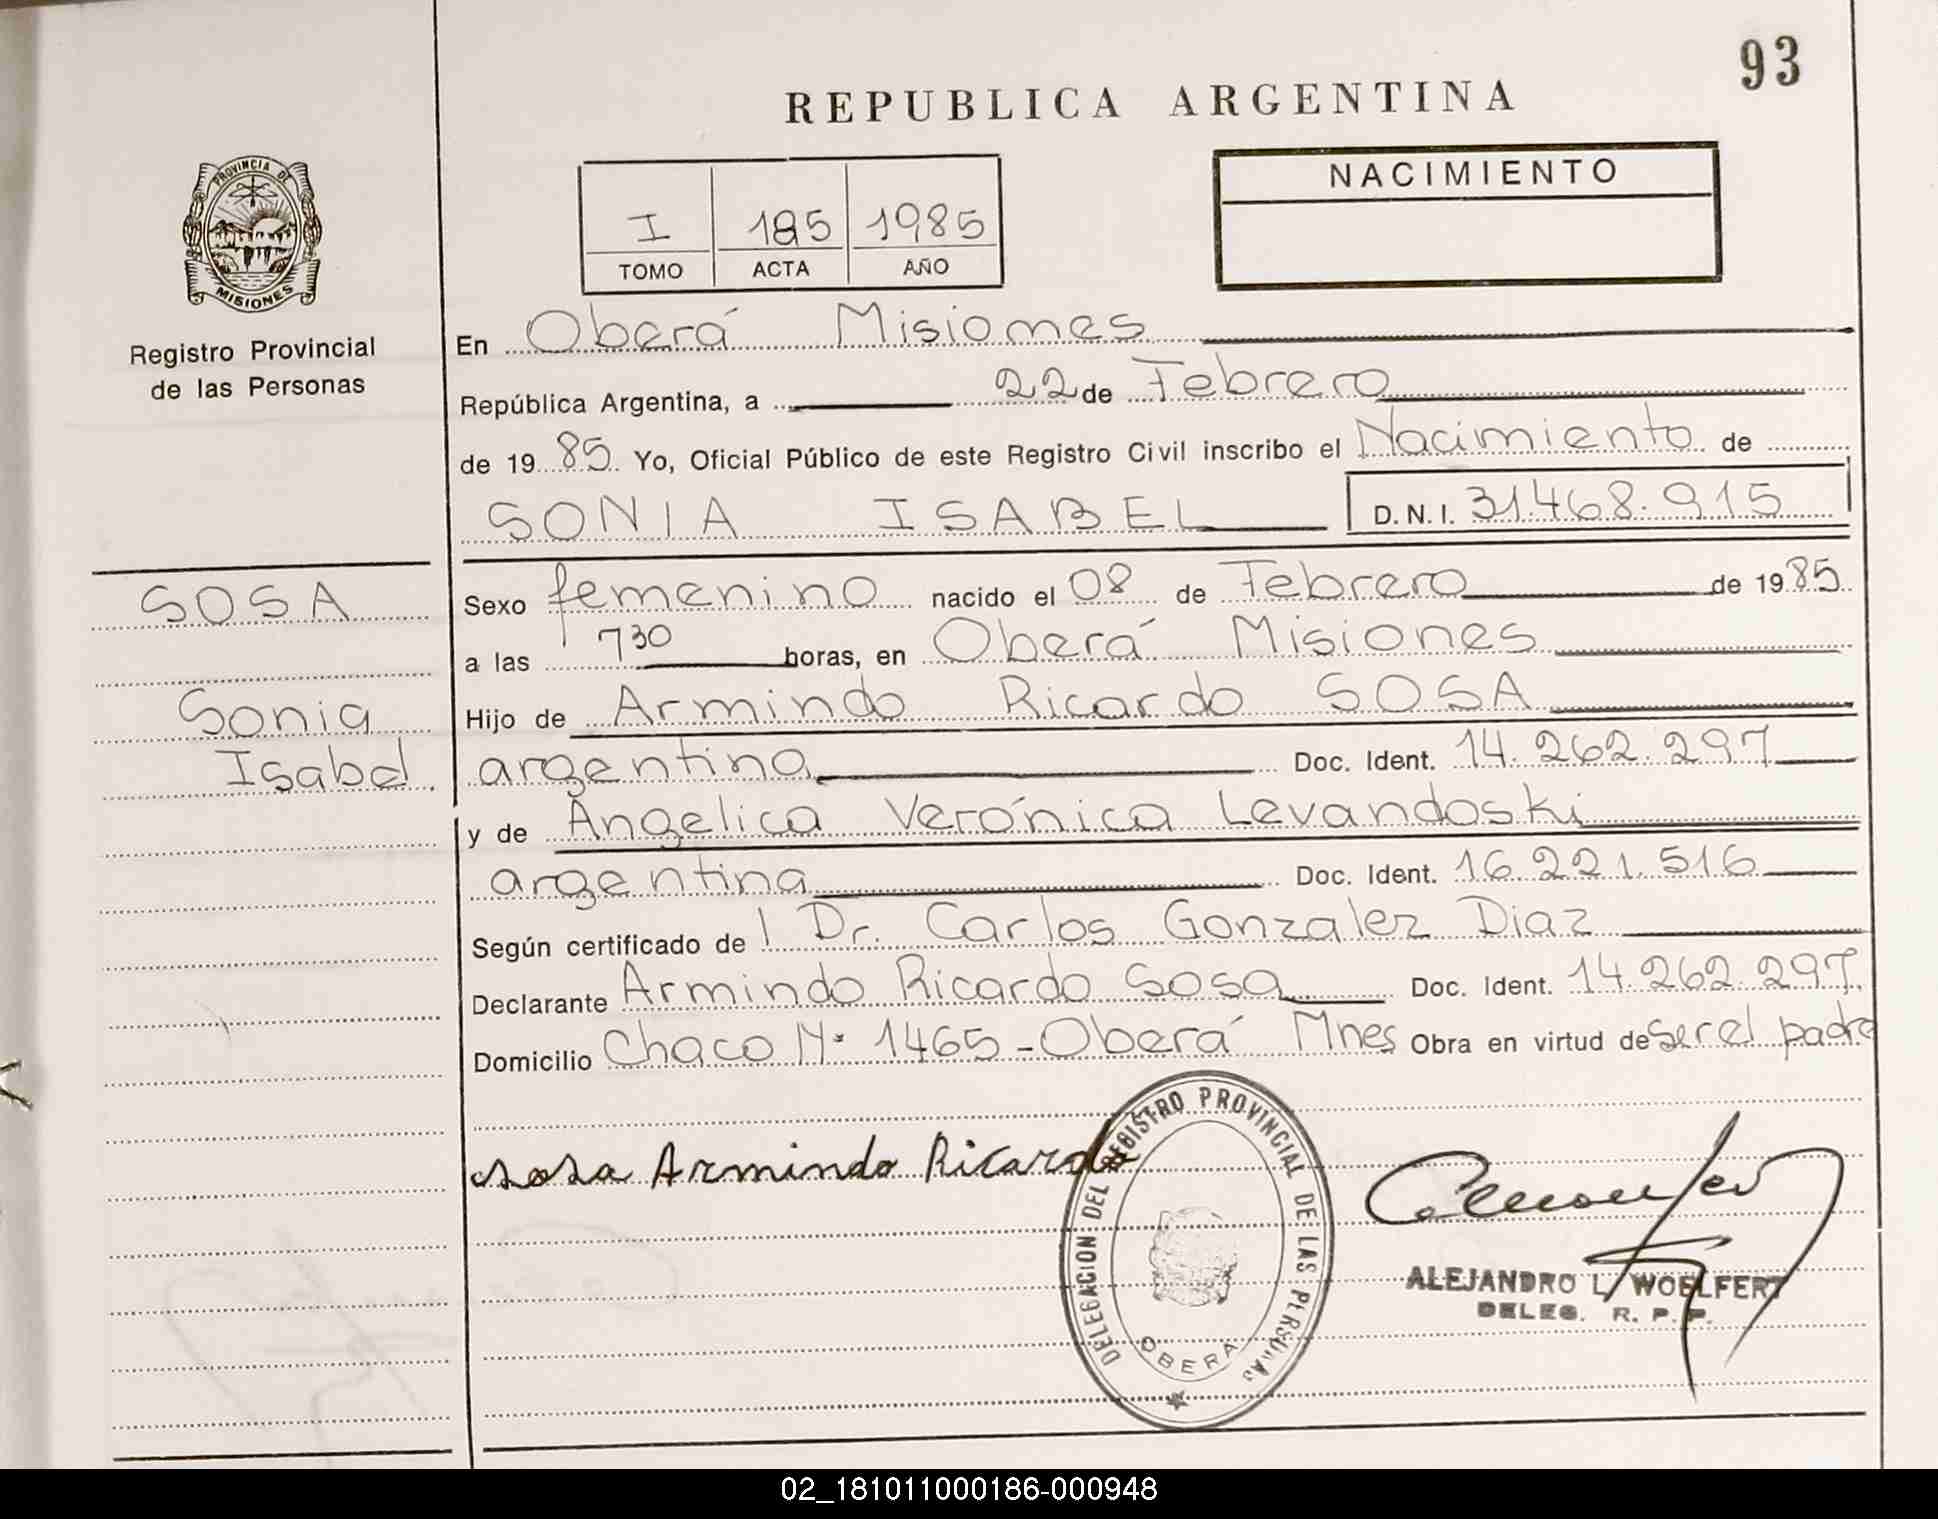 93
REPUBLICA ARGENTINA
PROVINCIA DE
MISIONES
Registro Provincial
de las Personas
I 185 1985
TOMO ACTA AÑO
NACIMIENTO
En Oberá Misiones
República Argentina, a 22 de Febrero
de 1985 Yo, Oficial Público de este Registro Civil inscribo el Nacimiento de
SONIA ISABEL D.N.I. 31.468.915
SOSA
Sonia
Isabel
Sexo femenino nacido el 08 de Febrero de 1985
a las 730 horas, en Oberá Misiones
Hijo de Armindo Ricardo SOSA
argentino Doc. Ident. 14.262.297
y de Angelica Verónica Levandoski
argentina Doc. Ident. 16.221.516
Según certificado de l Dr. Carlos Gonzalez Diaz
Declarante Armindo Ricardo Sosa Doc. Ident. 14.262.297.
Domicilio Chaco Nº 1465 - Oberá Mnes Obra en virtud de ser el padre
Sosa Armindo Ricardo
DELEGACION DEL REGISTRO PROVINCIAL DE LAS PERSONAS
OBERA
ALEJANDRO L. WOELFERT
DELEG. R. P. P.
02_181011000186-000948